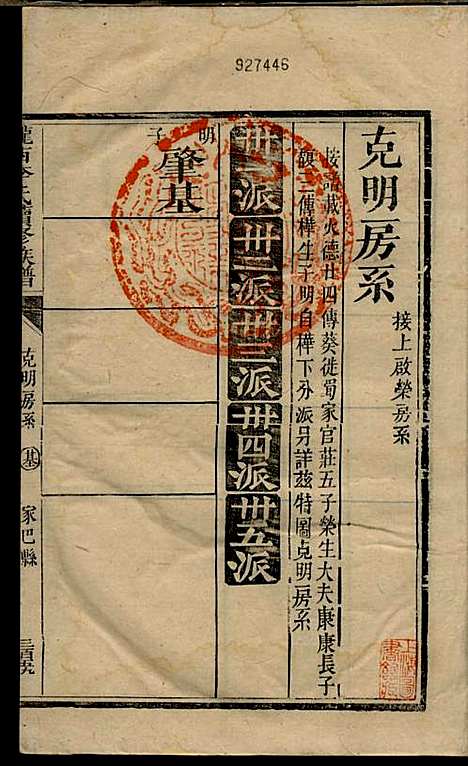 927446
克明房系
接上啟榮房系
按譜載火德廿四傳葵徙蜀家官莊五子榮生大夫康康長子
三傳樺生子明自樺下外派另詳茲特圖克明房系
派
卅二派
卅三派
卅四派
卅五派
明子
肇基
氏續修族譜
克明房系
基
家巴縣